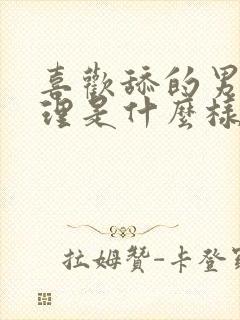 喜歡舔的男
理是什麼樣
拉姆贊-卡登